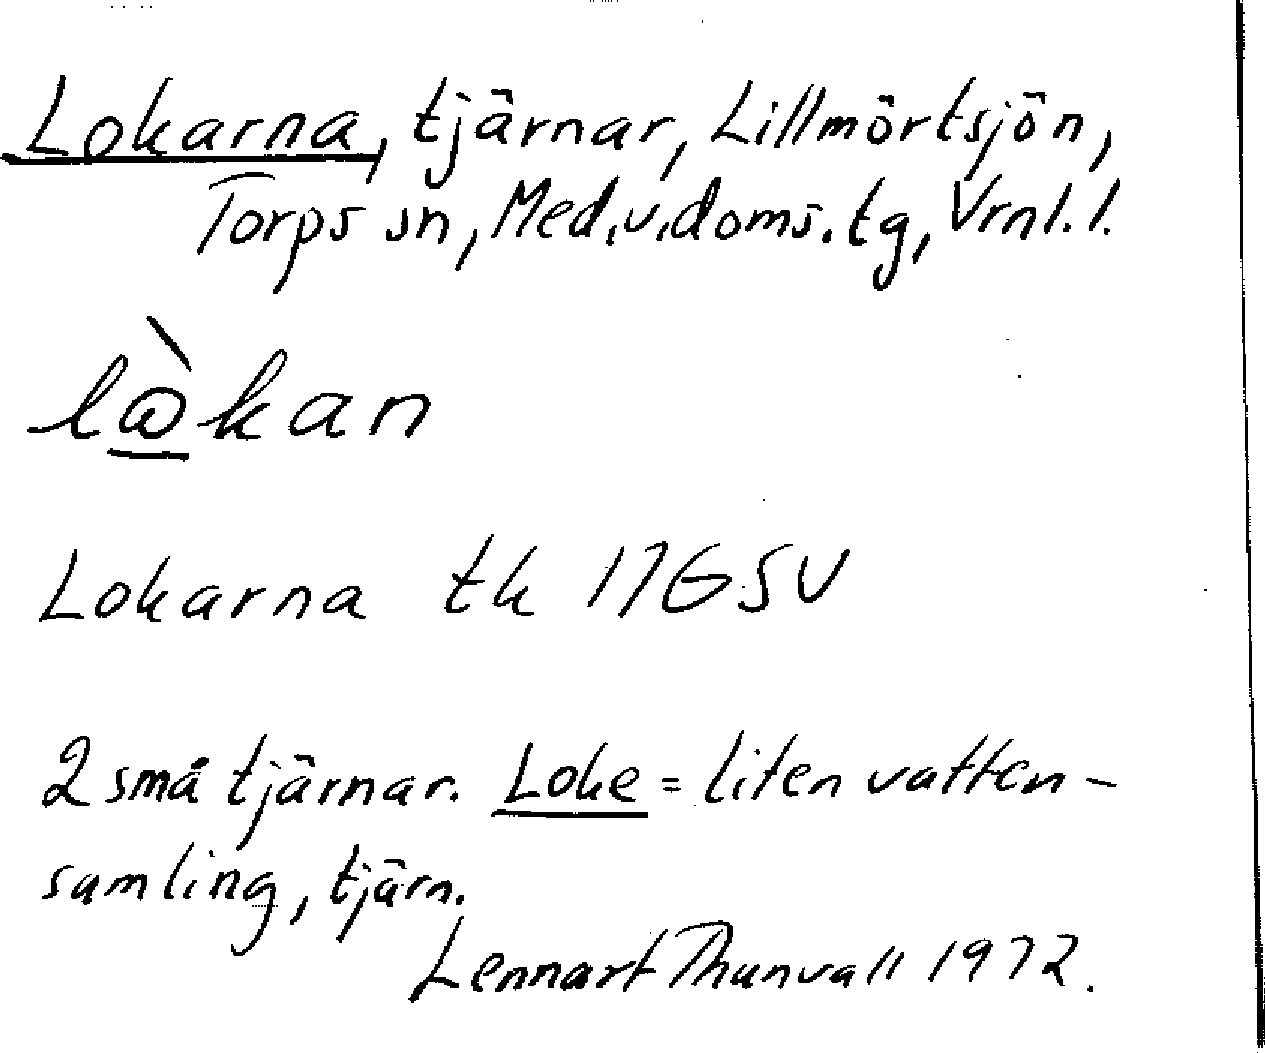 Lokarna, tjärnar, Lillmörtsjön,
Torps sn, Med.v.doms.tg, Vrnl.l.
l@̀kan
Lokarna tk 17G SV
2 små tjärnar. Loke = liten vatten-
samling, tjärn.
Lennart Thunvall 1972.